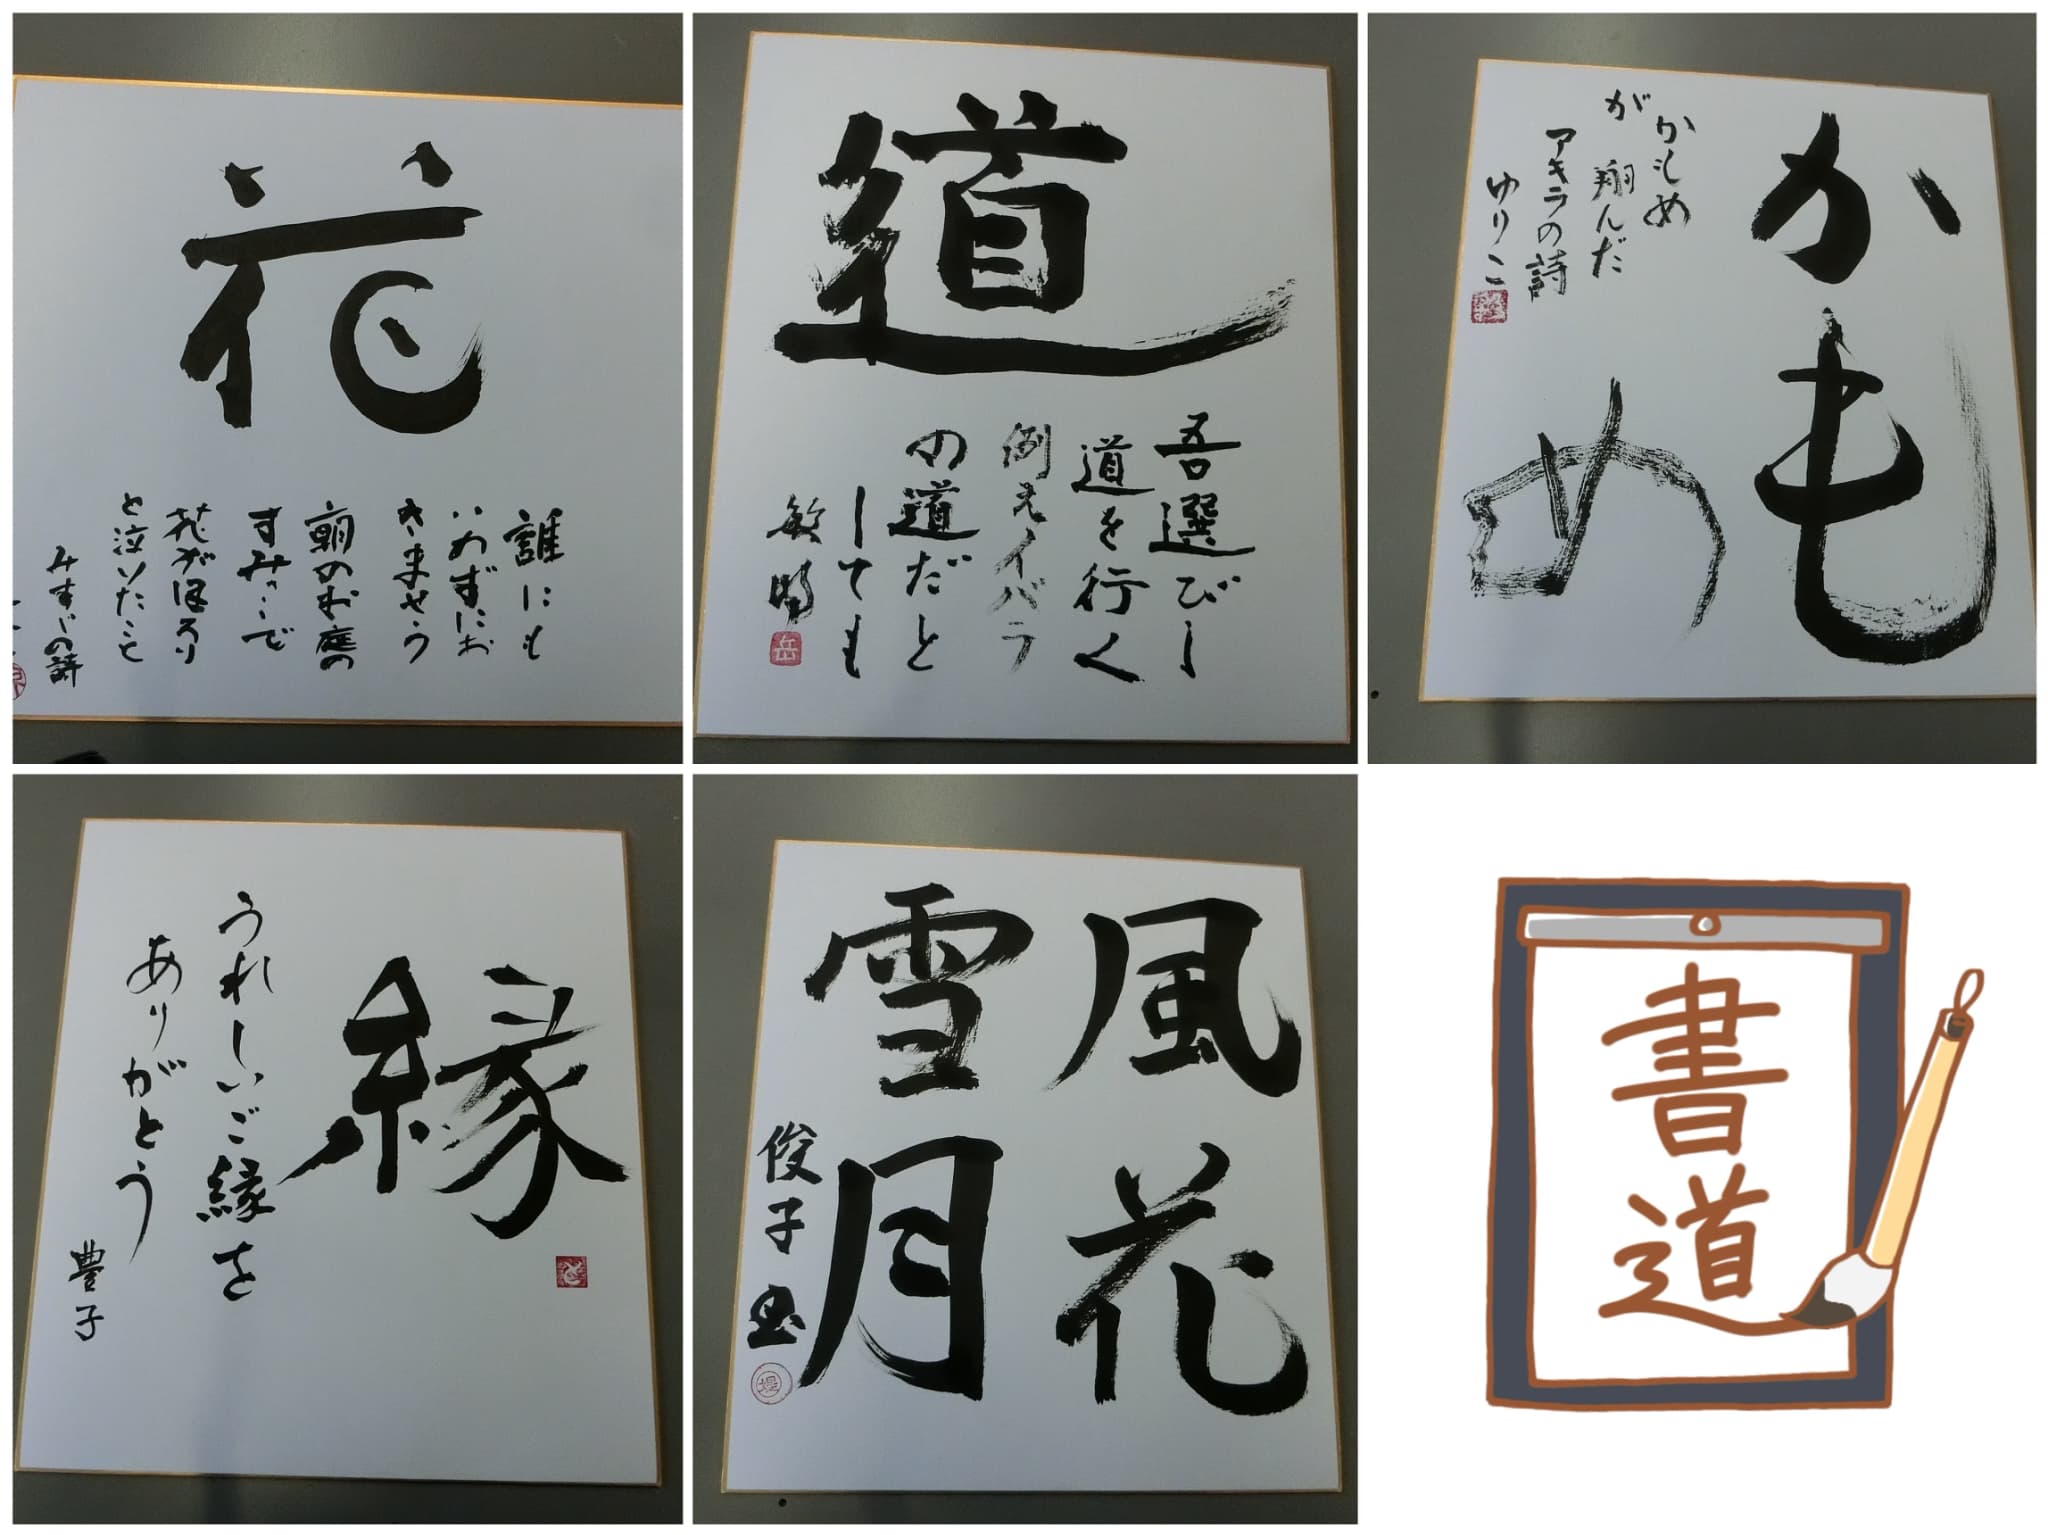 花
誰にも
いわずにお
きませう
朝のお庭の
すみっこで
花がほろり
と泣いたこと
みすゞの詩
道
吾選びし
道を行く
例えイバラ
の道だと
しても
敏晴
岳
かも
め
かもめ
が翔んだ
アキラの詩
ゆりこ
縁
うれしいご縁を
ありがとう
豊子
と
風花
雪月
俊子
書道